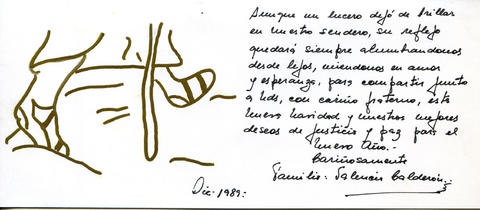 Aunque un lucero dejó de brillar
en nuestro sendero, su reflejo
quedará siempre alumbrandonos
desde lejos, uniendonos en amor
y esperanza, para compartir junto
a Uds, con cariño fraterno, esta
nueva navidad y nuestros mejores
deseos de justicia y paz para el
nuevo Año.-
Cariñosamente
Familia: Valencia Calderón.
Dic. 1989.